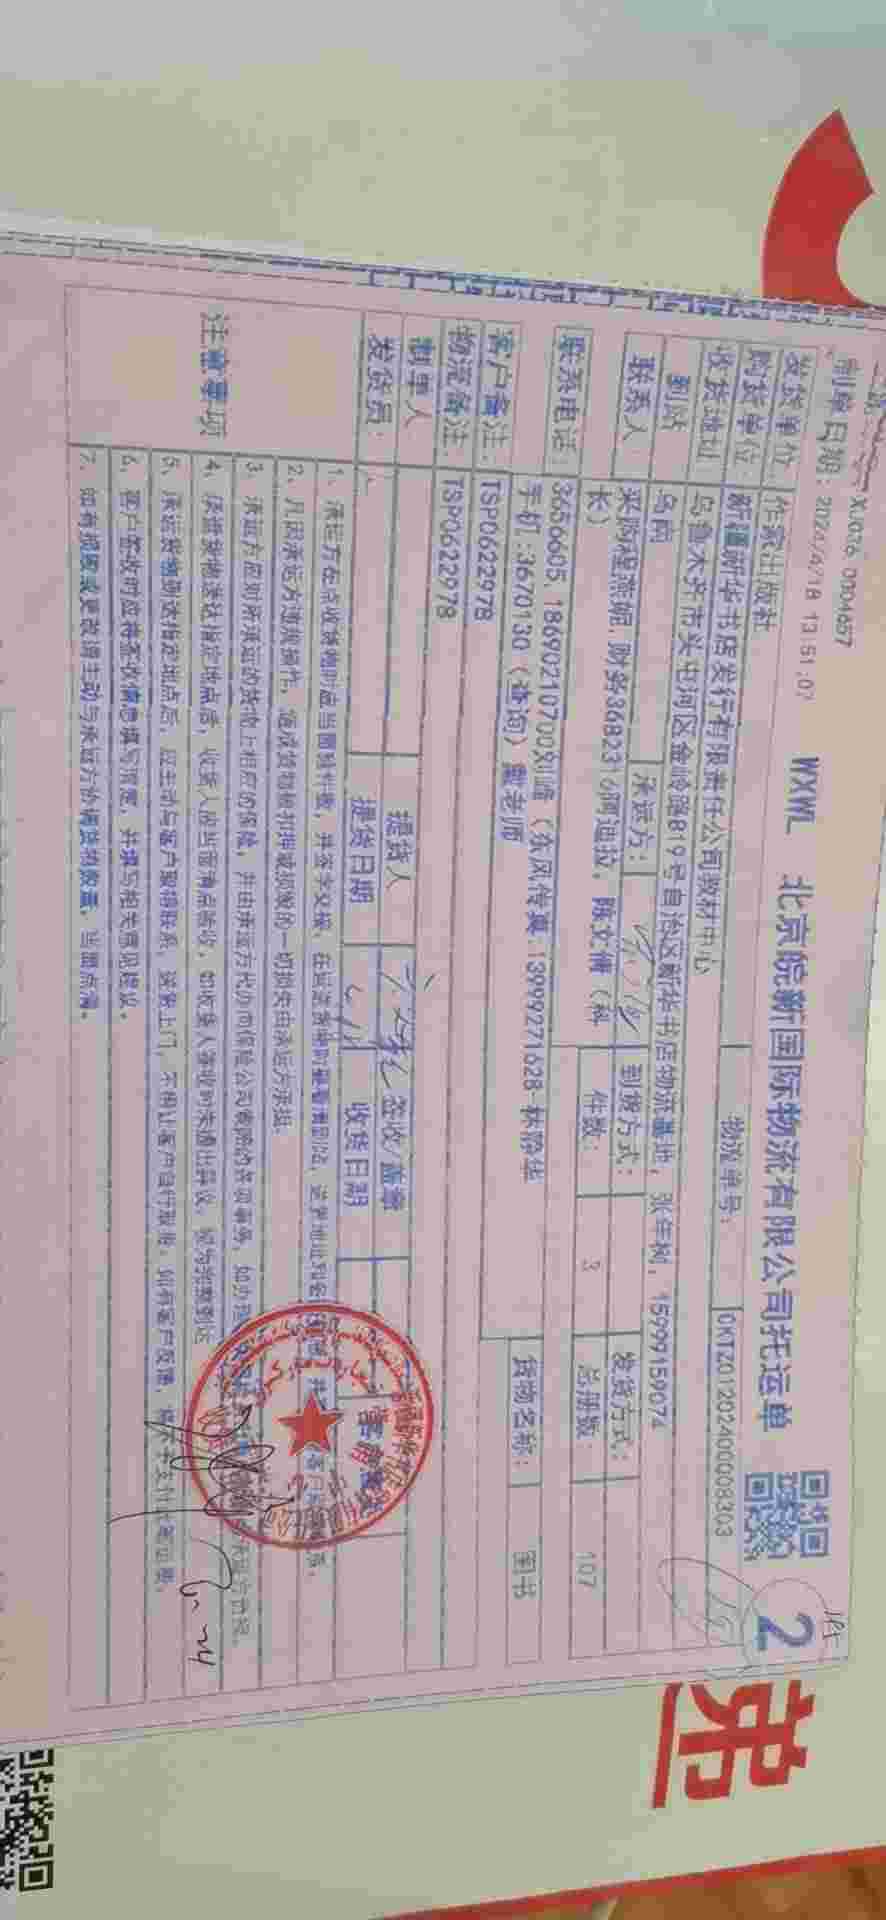 XJ026 0004657
制单日期: 2024/4/18 13:51:07 WXWL 北京皖新国际物流有限公司托运单 2
发货单位 作家出版社 物流单号: 0KTZ0120240008303
购货单位 新疆新华书店发行有限责任公司教材中心
收货地址 乌鲁木齐市头屯河区金岭路819号自治区新华书店物流基地, 张年树, 15999159074
到站 乌西 承运方: 到货方式: 发货方式:
联系人 采购程燕妮, 财务3682316阿迪拉, 陈文倩(科长) 件数: 3 总册数: 107
联系电话 3656605 18690210700刘峰(东风传真:13999271628-林静华
手机:3670130(查询)戴老师 货物名称: 图书
客户备注: TSP0622978
物流备注: TSP0622978
制单人 提货人 签收/盖章
发货员: 提货日期 收货日期
注意事项
1、承运方在点收货物时应当面明件数, 并签字交接,
2、凡因承运方违规操作, 造成货物被扣押或损毁的一切损失由承运方承担.
3、承运方应对所承运的货物上相应的保险, 并由承运方代办向保险公司索赔的各项事务,
4、须普货物送达指定地点后, 收货人应当面清点验收, 如收货人签收时未提出异议, 视为完整到达
5、承运货物到达指定地点后, 应主动与客户取得联系, 送货上门, 不得让客户自行提货, 如有客户反馈,
6、客户签收时应将签收信息填写清楚, 并填写相关意见建议。
7、如有损毁或更改请主动与承运方办调货物数量, 当面点清。
第